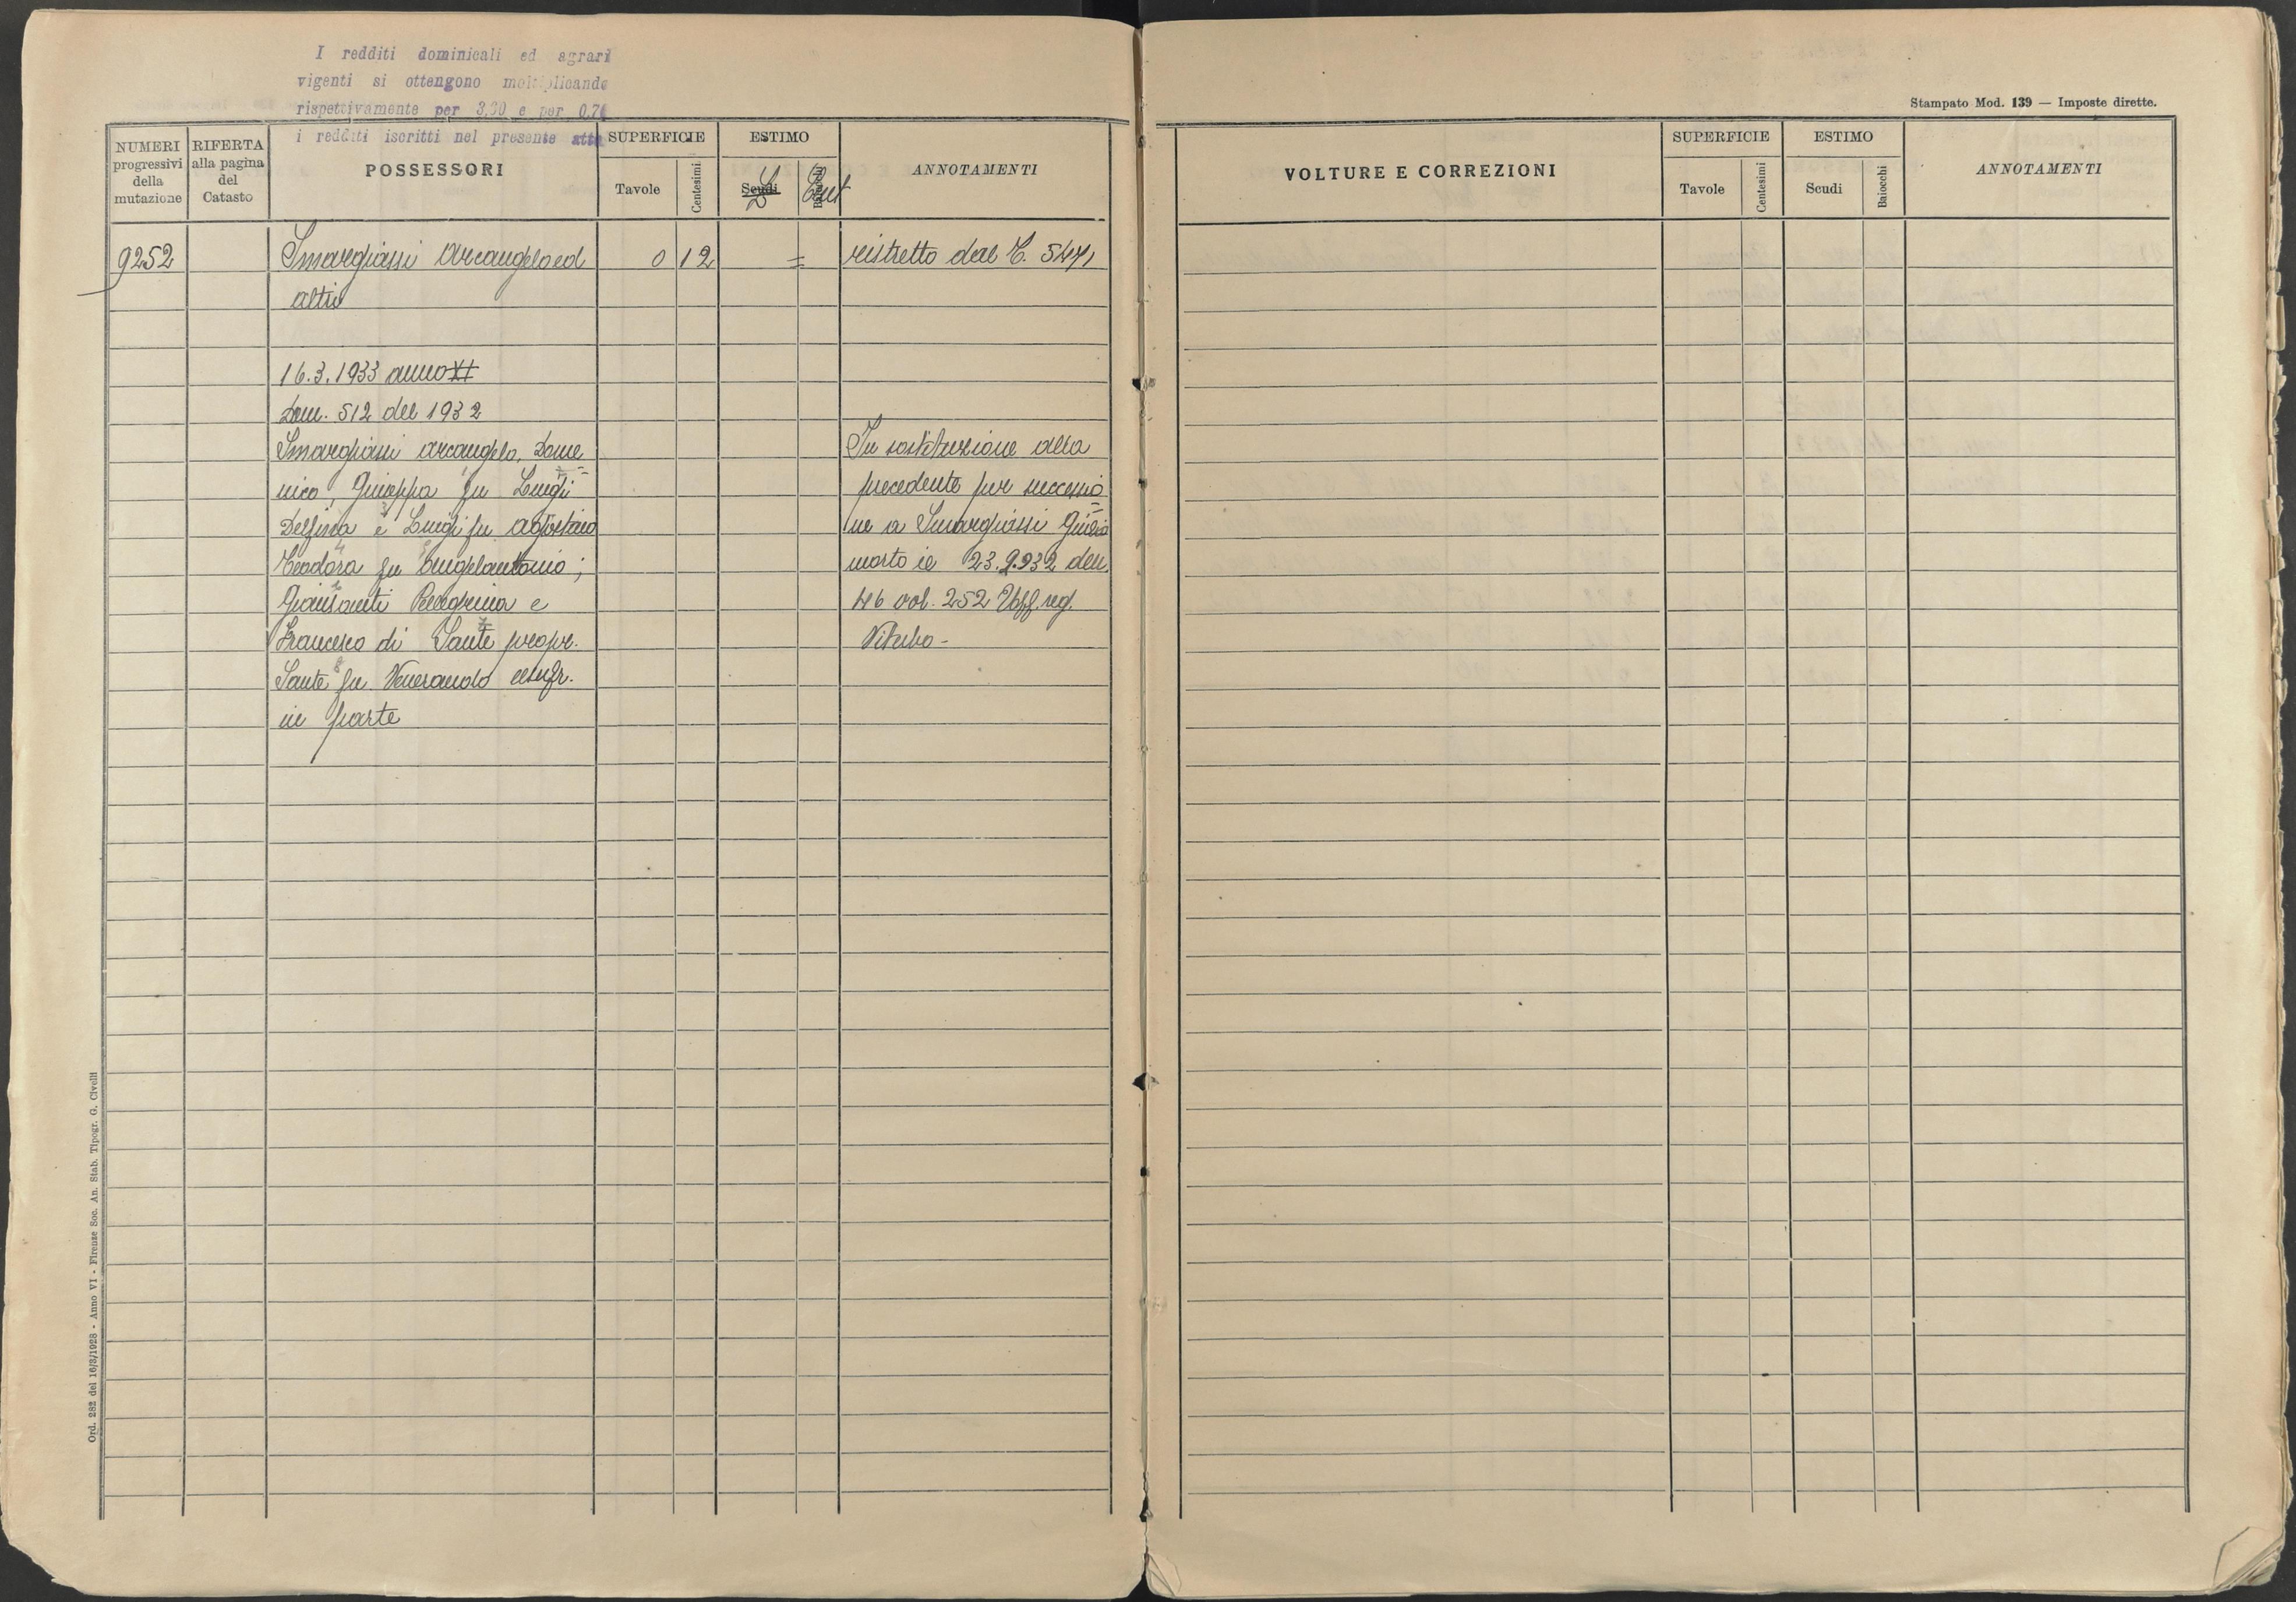 I redditi dominicali ed agrari
vigenti si ottengono moltiplicando
rispettivamente per 3,30 e per 0,7
i redditi iscritti nel presente atto
Stampato Mod. 139 — Imposte dirette.
NUMERI progressivi della mutazione
RIFERTA alla pagina del Catasto
POSSESSORI
SUPERFICIE
Tavole
Centesimi
ESTIMO
Scudi
L
Baiocchi
Cent
ANNOTAMENTI
9252 Smargiassi Arcangelo ed 0 12 = ristretto dal C. 5471
altri
16.3.1933 anno XI
Dom. 512 del 1932
Smargiassi Arcangelo, Dome
nico, Giuseppa fu Luigi
Delfina e Luigi fu Agostino
Teodora fu Angelantonio;
Giansanti Pellegrina e
Francesco di Sante propr.
Sante fu Venerando usufr.
in parte
In sostituzione alla
precedente per successio
ne a Smargiassi Giulio
morto il 23.9.932 den.
46 vol. 252 Uff. reg.
Viterbo -
VOLTURE E CORREZIONI
SUPERFICIE
Tavole
Centesimi
ESTIMO
Scudi
Baiocchi
ANNOTAMENTI
Ord. 282 del 16/3/1928 - Anno VI - Firenze Soc. An. Stab. Tipogr. G. Civelli